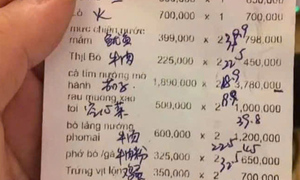 火
700,000 × 1 700,000
mực chiên nước
mắm 鱿鱼 399,000 × 2 798,000
Thịt Bò 牛肉 225,000 × 2 450,000
cà tím nướng mỡ
hành 茄子 1,890,000 × 2 3,780,000
rau muống xào
tỏi 空心菜 500,000 × 2 1,000,000
39.8
bò lăng nướng
phomai 牛肉 600,000 × 2 1,200,000
phở bò /gà 牛肉粉 325,000 × 2 650,000
Trứng vịt lộn 350,000 × 2 700